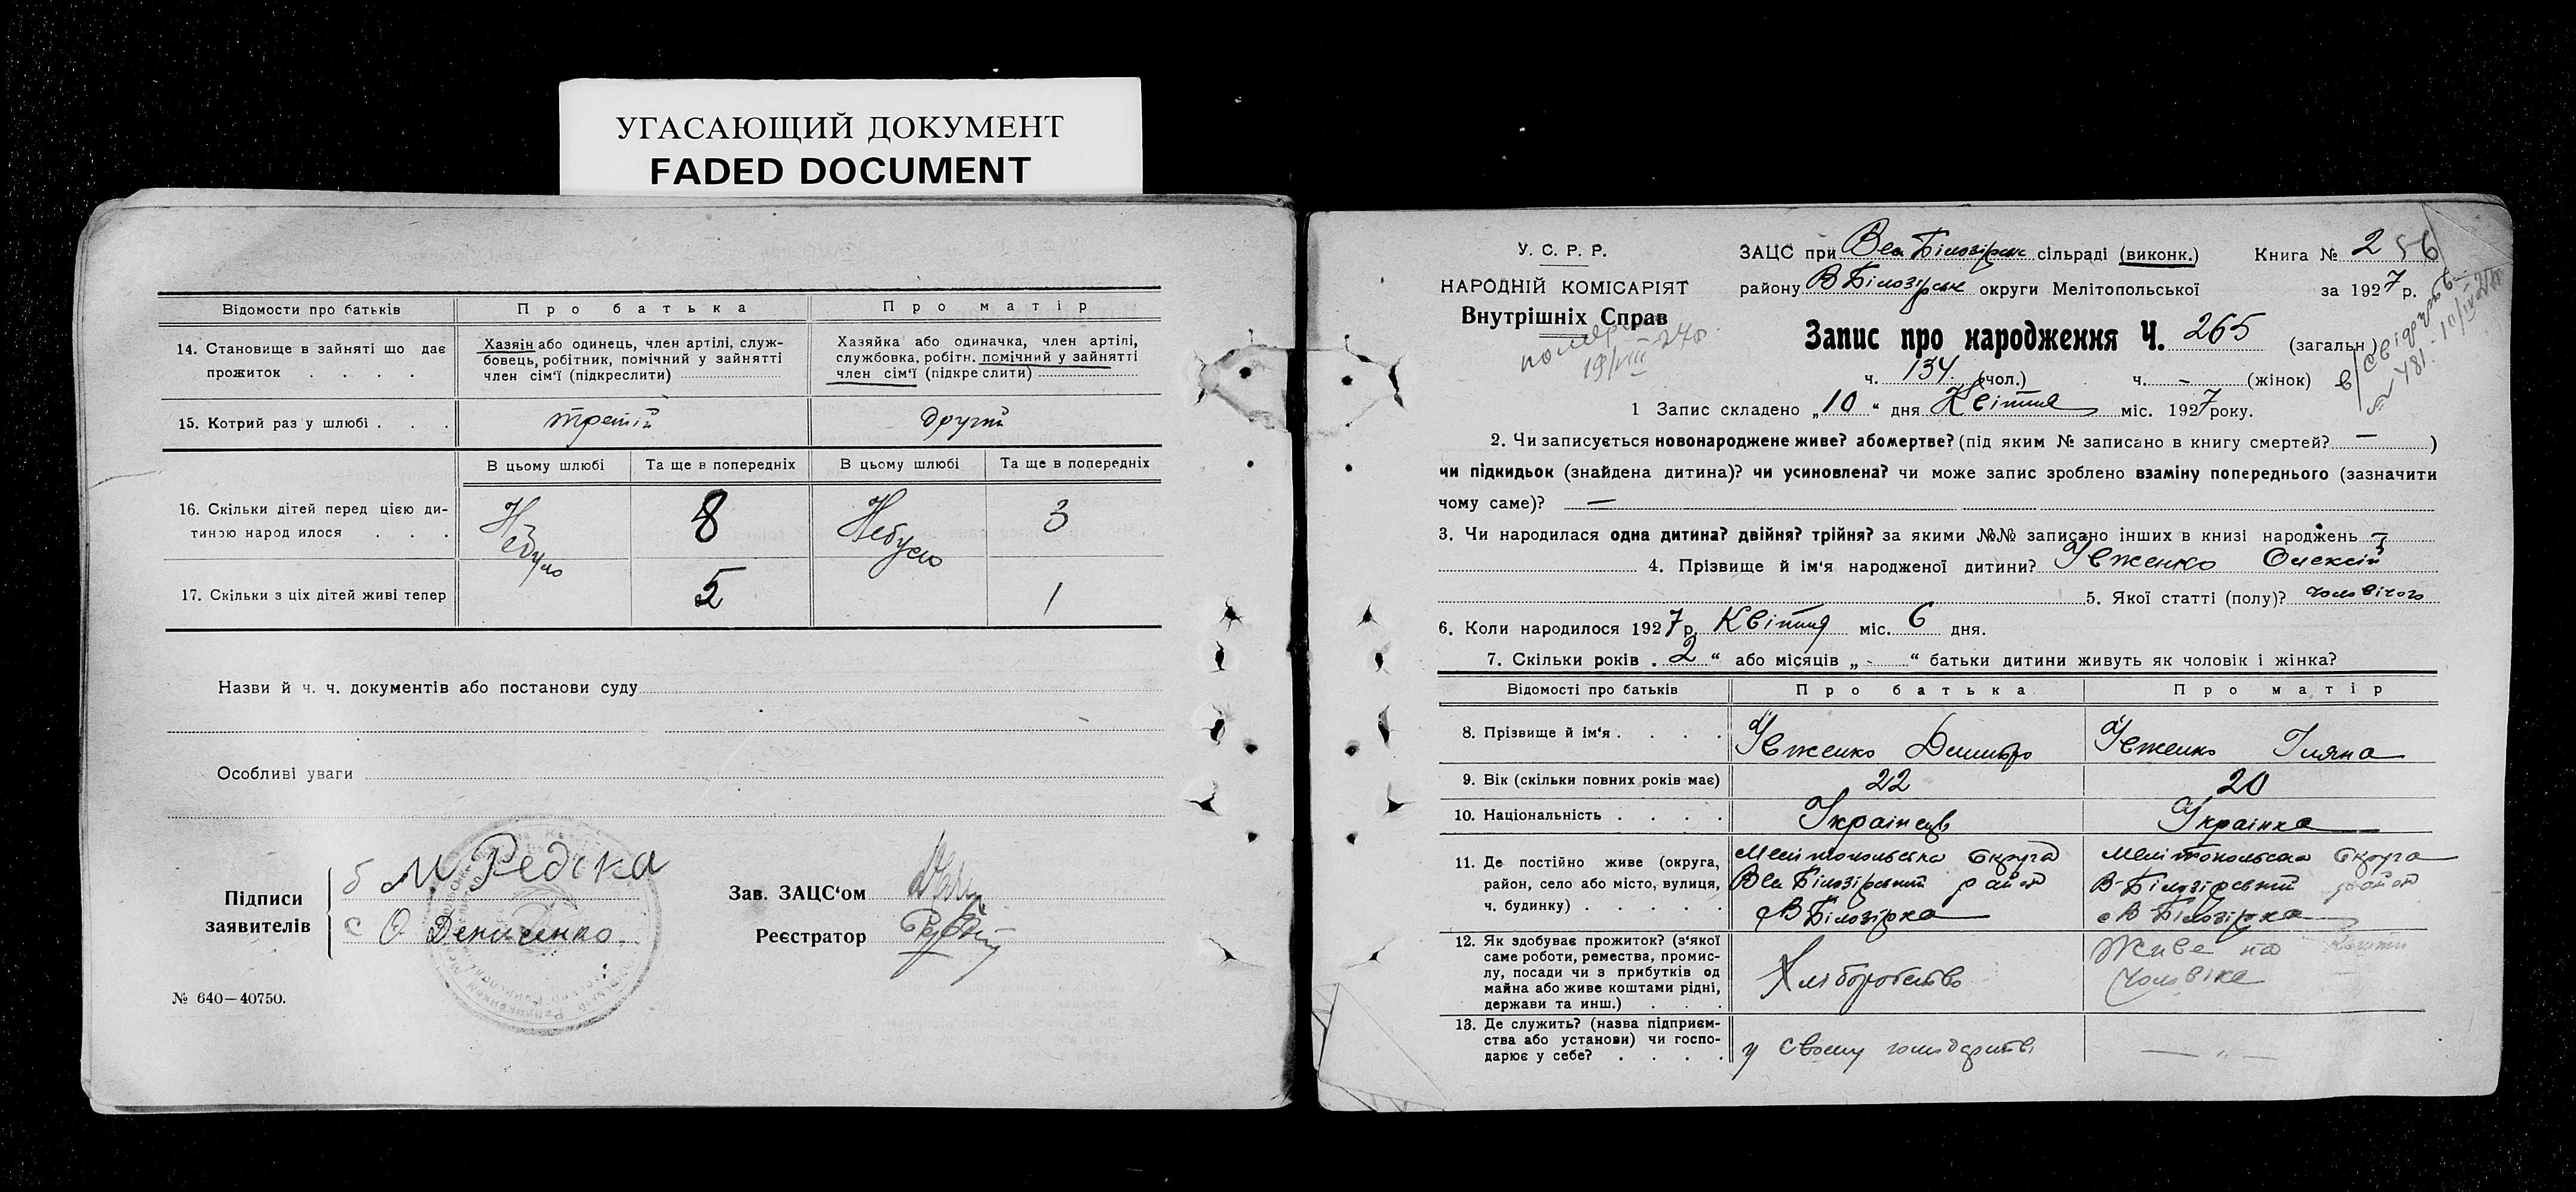 УГАСАЮЩИЙ ДОКУМЕНТ
FADED DOCUMENT
Відомости про батьків
Про батька
Про матір
14. Становище в зайняті що дає прожиток . . . .
Хазяїн або одинець, член артілі, служ-
бовець, робітник, помічний у зайнятті
член сім'ї (підкреслити)
Хазяйка або одиначка, член артілі,
службовка, робітн. помічний у зайнятті
член сім'ї (підкреслити)
15. Котрий раз у шлюбі . . .
третій
другий
В цьому шлюбі
Та ще в попередніх
В цьому шлюбі
Та ще в попередніх
16. Скільки дітей перед цією ди-
тиною народилося . . .
Небуло
8
Небуло
3
17. Скільки з ціх дітей живі тепер
5
1
Назви й ч. ч. документів або постанови суду
Особливі уваги
Підписи
заявителів
б М Редька
с О Дениченко
Зав. ЗАЦС'ом
Реєстратор
№ 640—40750.
У. С. Р. Р.
НАРОДНІЙ КОМІСАРІЯТ
Внутрішніх Справ
помер
19/VIII
ЗАЦС при Вел Білозірськ сільраді (виконк.)
Книга № 2 56
району В Білозірськ округи Мелітопольської
за 1927 р.
Запис про народження Ч. 265 (загальн.)
ч. 134 (чол.) ч. - (жінок)
в/свідоцтв
№ 481 - 10/IX
1 Запис складено „10" дня Квітня міс. 1927 року.
2. Чи записується новонароджене живе? або мертве? (під яким № записано в книгу смертей? — )
чи підкидьок (знайдена дитина)? чи усиновлена? чи може запис зроблено взаміну попереднього (зазначити
чому саме)? —
3. Чи народилася одна дитина? двійня? трійня? за якими №№ записано інших в книзі народжень
4. Прізвище й ім'я народженої дитини? Увженко Олексій
5. Якої статті (полу)? чоловічого
6. Коли народилося 1927 р. Квітня міс. 6 дня.
7. Скільки років „2" або місяців „-" батьки дитини живуть як чоловік і жінка?
Відомості про батьків
Про батька
Про матір
8. Прізвище й ім'я . . . .
Увженко Дмитро
Увженко Уляна
9. Вік (скільки повних років має)
22
20
10. Національність . . . .
Українець
Українка
11. Де постійно живе (округа,
район, село або місто, вулиця,
ч. будинку) . . . . .
Мелітопольська Округа
Вел Білозірський район
с В Білозірка
Мелітопольська Округа
В-Білозірський район
с В Білозірка
12. Як здобуває прожиток? (з'якої
саме роботи, ремества, промис-
лу, посади чи з прибутків од
майна або живе коштами рідні,
держави та инш.) . . .
Хліборобство
Живе на кошти
чоловіка
13. Де служить? (назва підприєм-
ства або установи) чи госпо-
дарює у себе? . . . .
у своему господарстві
— „ —